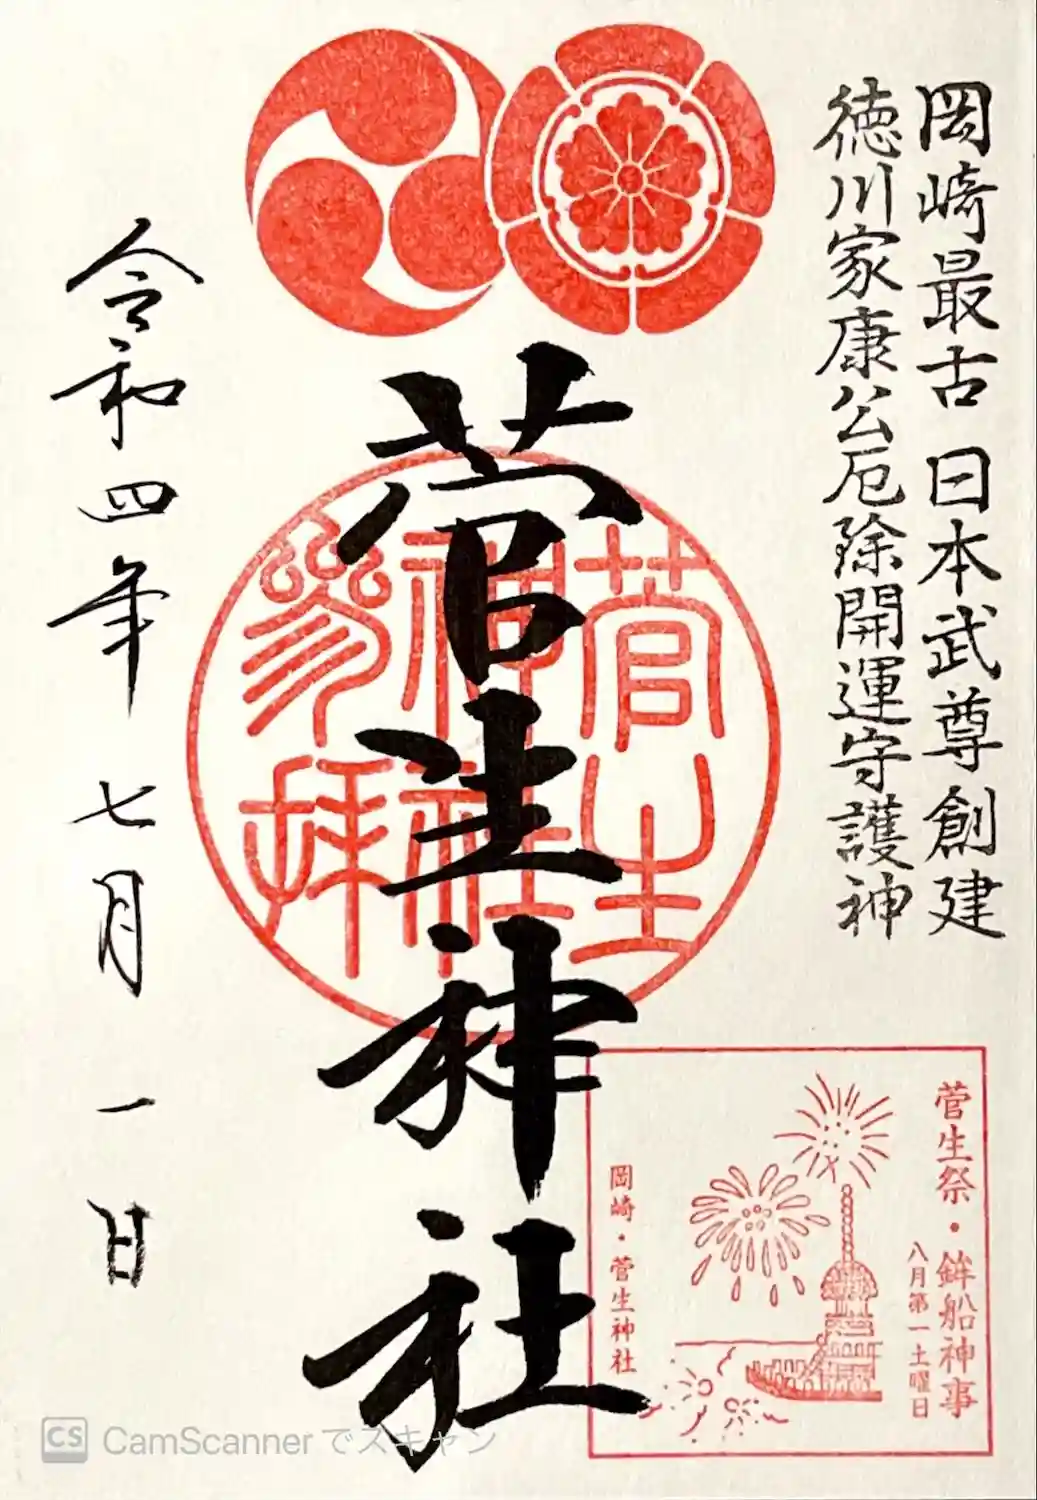 岡崎最古 日本武尊創建
徳川家康公厄除開運守護神
菅生神社
菅生
神社
参拝
令和四年 七月一日
菅生祭・鉾船神事
八月第一土曜日
岡崎・菅生神社
CS CamScannerでスキャン